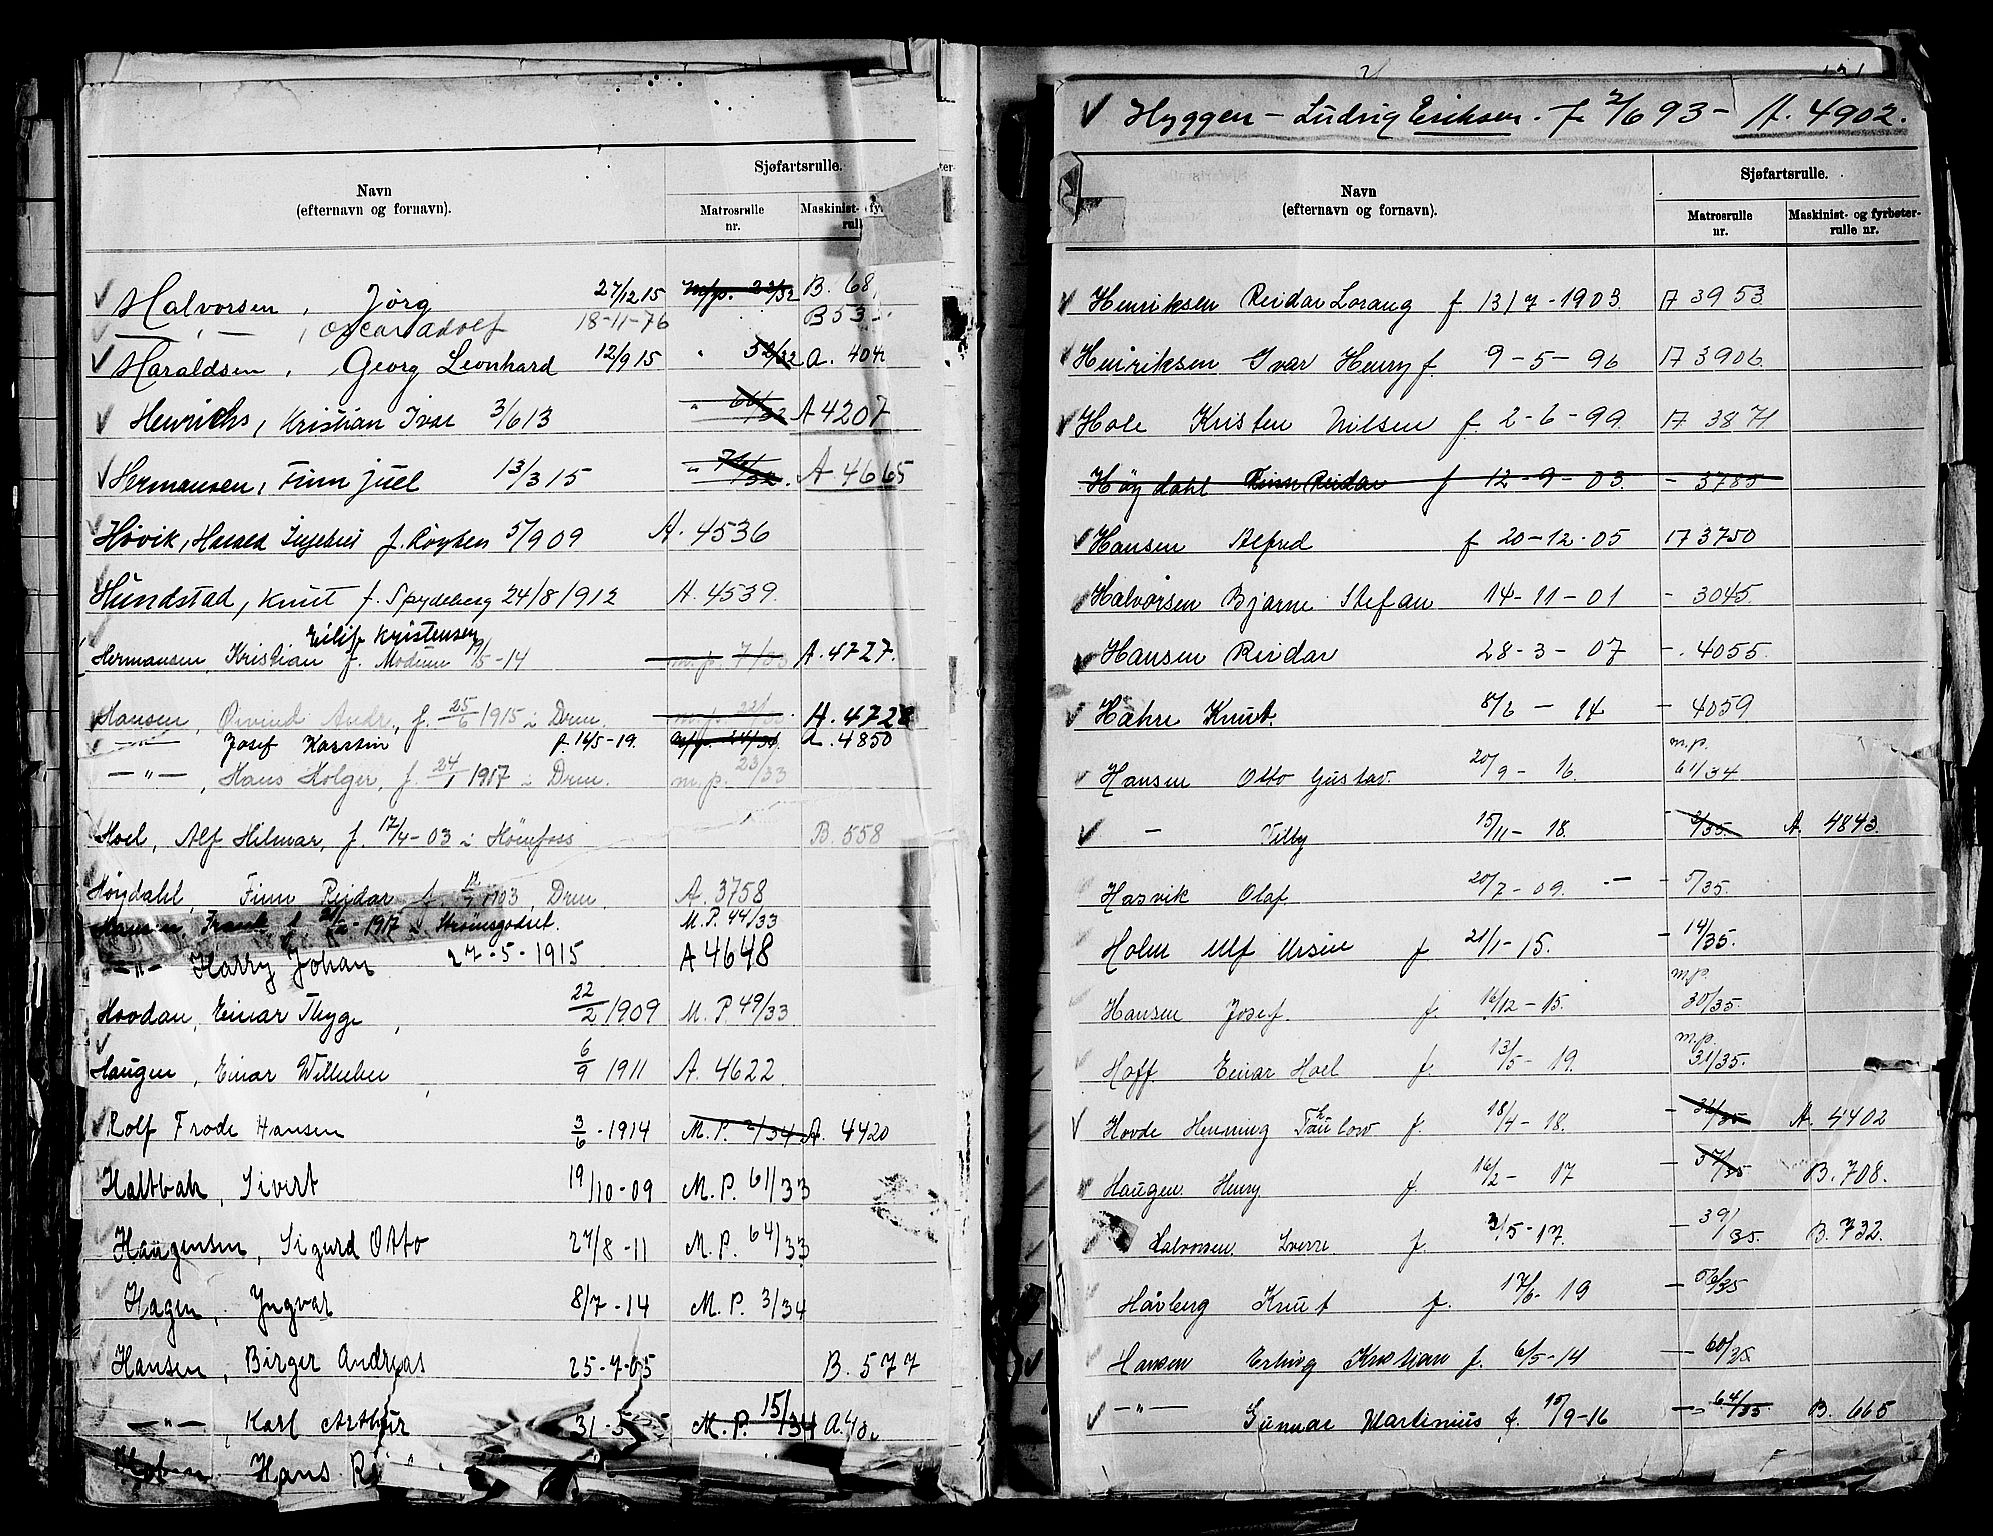 Sjøfartsrulle.
Navn
(efternavn og fornavn).
Matrosrulle
nr.
Maskinist- fy
rull
Halvorsen, Jörg 27/12 15 m/p. 22/32 B. 68,
— , — , Oscar Adolf 18-11-76 B53
Haraldsen, Georg Leonhard 12/9 15 " 52/32 A. 404
Henrichs, Kristian Ivar 3/6 13 " 61/32 A 4207
Hermansen, Finn Juel 13/3 15 " /32. A 4665
Hövik, Ingebret f. Röyken 5/9 09 A. 4536
Hundstad, Knut f. Spydeberg 24/8/1912 A. 4539.
Eilif Kristensen
Hermansen, Kristian f. Modum /5-14 m.p. 7/33 A. 4727.
Hansen, Öivind Andr., f. 25/6 1915 i Drm. m.p. 22/33 A. 4728
— " — Josef Karstin f. 14/5-19. A. 4850
— " — , Hans Holger, f. 24/1 1917 i Drm. m.p. 23/33
Hoel, Alf Hilmar, f. 17/4-03 i Hönefoss B. 558
Höydahl, Finn Reidar f. 12/9 1903, Drm. A. 3758
Hansen, Frank, f. 1917 i Strömsgodset. M.P. 44/33
— " — Harry Johan 27-5-1915 A 4648
Hovdan, Einar Thyge, 22/2 1909 M.P. 49/33
Haugen, Einar Wilhelm, 6/9 1911 A. 4622
Rolf Frode Hansen 3/6-1914 M.P. 2/34 A. 4420
Haltbak, Sivert 19/10-09 M.P. 61/33
Haugensen, Sigurd Otto 27/8-11 M.P. 64/33
Hagen, Yngvar 8/7-14 M.P. 3/34
Hansen, Birger Andreas 25-7-05 B. 577
— " — , Karl Arthur 31-5- M.P. 15/34 A.
Hans
Hyggen - Ludvig Eriksen. f 2/6 93 - A. 4902.
Sjøfartsrulle.
Navn
(efternavn og fornavn).
Matrosrulle
nr.
Maskinist- og fyrbøter-
rulle nr.
Henriksen Reidar Lorang f 13/7-1903. A 3953
Henriksen Ivar Henry f. 9-5-96 A 3906.
Hole Kristen Nilsen f. 2-6-99 A 3871
Höydahl Finn Reidar f 12-9-03. - 3785
Hansen Alfred f 20-12-05 A 3750
Halvorsen Bjarne Stefan 14-11-01 - 3045.
Hansen Reidar 28-3-07 -. 4055.
Hahre Knut. 8/6-14 - 4059
Hansen Otto Gustav. 20/9-16. m.p. 61/34
— Villy 15/11-18. - 2/35. A. 4843.
Hasvik Olaf 20/7-09. - 5/35.
Holm Ulf Ursin f 21/1-15. - 14/35.
Hansen Josef. f. 16/12-15. m.p. 30/35.
Hoff. Einar Hoel f. 13/5-19. m.p. 31/35.
Hovde Henning Thaulow f. 18/4-18. - /35 A. 4402
Haugen Henry f. 16/2-17 - 37/35 B. 708.
Halvorsen Sverre f. 3/5-17. - 39/35. B. 732.
Håvberg Knut f. 17/6-19 - 56/35
Hansen Erling Kristian f. 6/5-14 - 60/35
— " — Gunnar Martinius f. 10/9-16 - 64/35 B. 665